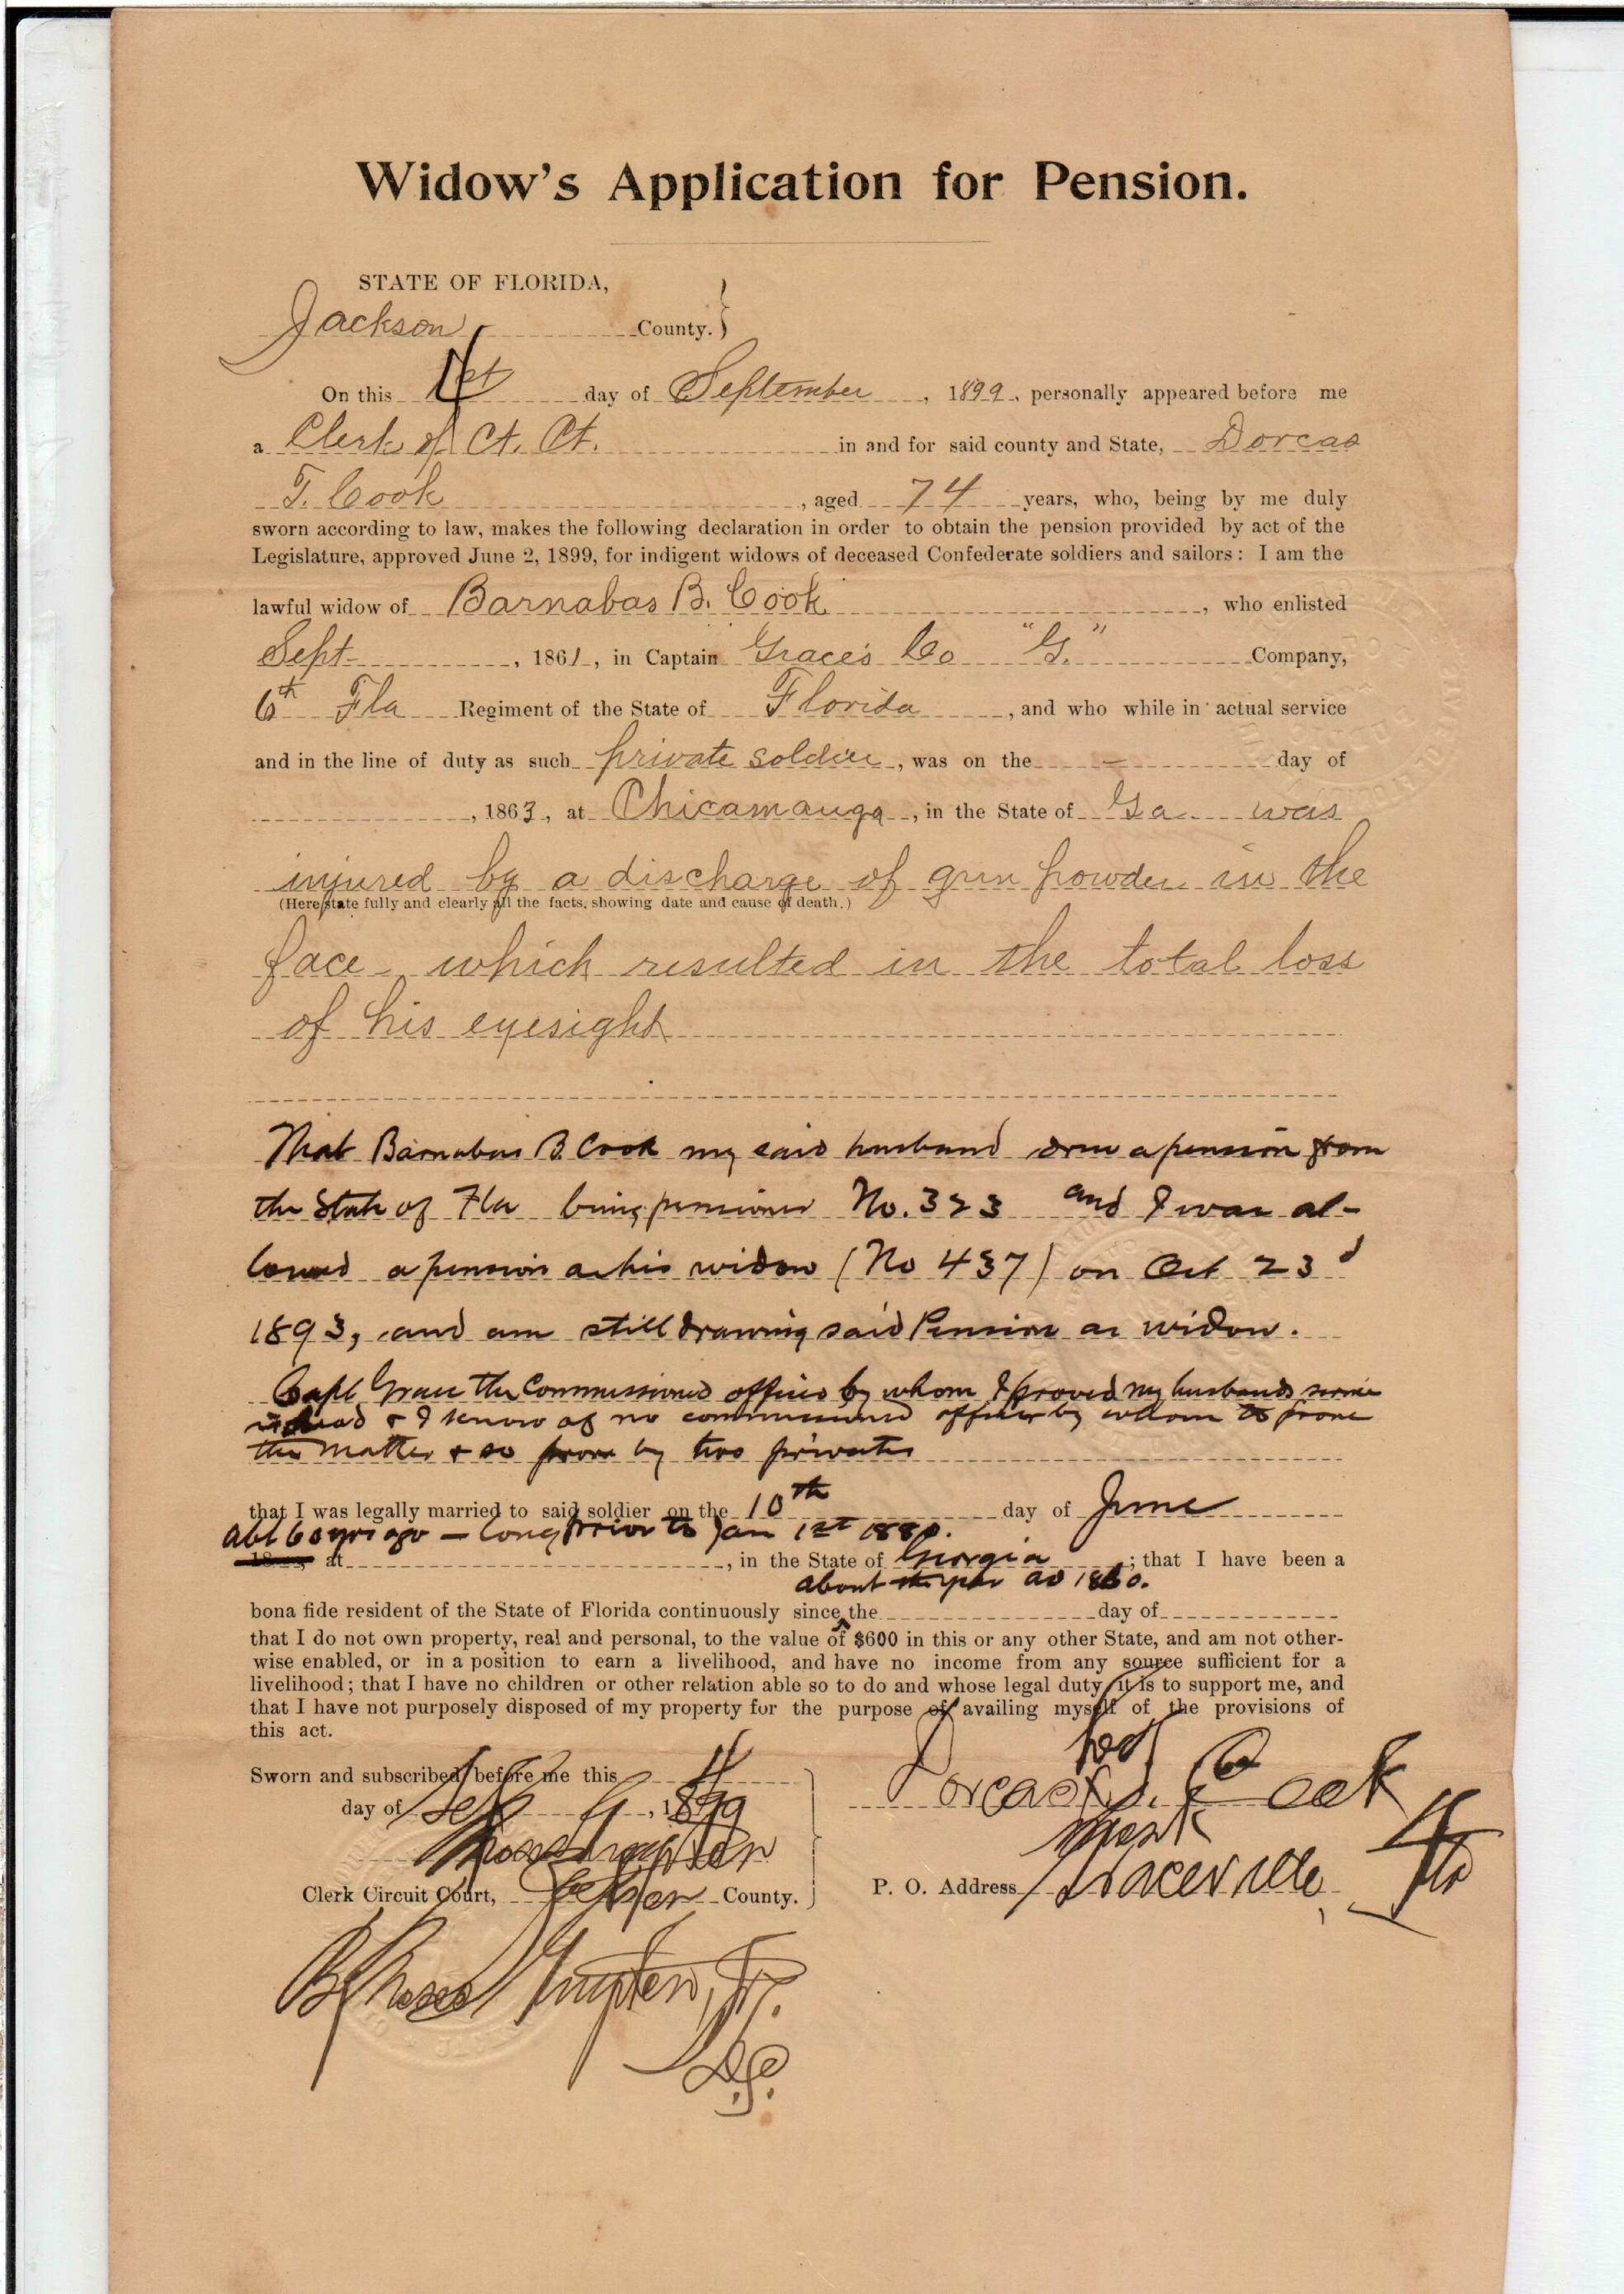 Widow's Application for Pension.
STATE OF FLORIDA,
Jackson County. }
On this 1st day of September, 1899, personally appeared before me
a Clerk of Ct. Ct. in and for said county and State, Dorcas
T. Cook, aged 74 years, who, being by me duly
sworn according to law, makes the following declaration in order to obtain the pension provided by act of the
Legislature, approved June 2, 1899, for indigent widows of deceased Confederate soldiers and sailors: I am the
lawful widow of Barnabas B. Cook, who enlisted
Sept, 1861, in Captain Grace's Co "G." Company,
6th Fla Regiment of the State of Florida, and who while in actual service
and in the line of duty as such private soldier, was on the — day of
, 1863, at Chicamauga, in the State of Ga was
injured by a discharge of gun powder in the
(Here state fully and clearly all the facts, showing date and cause of death.)
face which resulted in the total loss
of his eyesight
That Barnabas B. Cook my said husband drew a pension from
the State of Fla being pensioner No. 323 and I was al-
lowed a pension as his widow (No 437) on Oct 23d
1893, and am still drawing said Pension as widow.
Capt Grace the Commissioned officer by whom I proved my husbands service
is dead & I know of no commissioned officer by whom to prove
the matter & so prove by two privates
that I was legally married to said soldier on the 10th day of June
abt 60 yrs ago — long prior to Jan 1st 1880.
at, in the State of Georgia; that I have been a
about the year AD 1860.
bona fide resident of the State of Florida continuously since the day of
that I do not own property, real and personal, to the value of $600 in this or any other State, and am not other-
wise enabled, or in a position to earn a livelihood, and have no income from any source sufficient for a
livelihood; that I have no children or other relation able so to do and whose legal duty it is to support me, and
that I have not purposely disposed of my property for the purpose of availing myself of the provisions of
this act.
Sworn and subscribed before me this 4
day of Sept, 1899
her
Dorcas X T. Cook
mark
Clerk Circuit Court, Jackson County.
P. O. Address Graceville Fla
D.C.